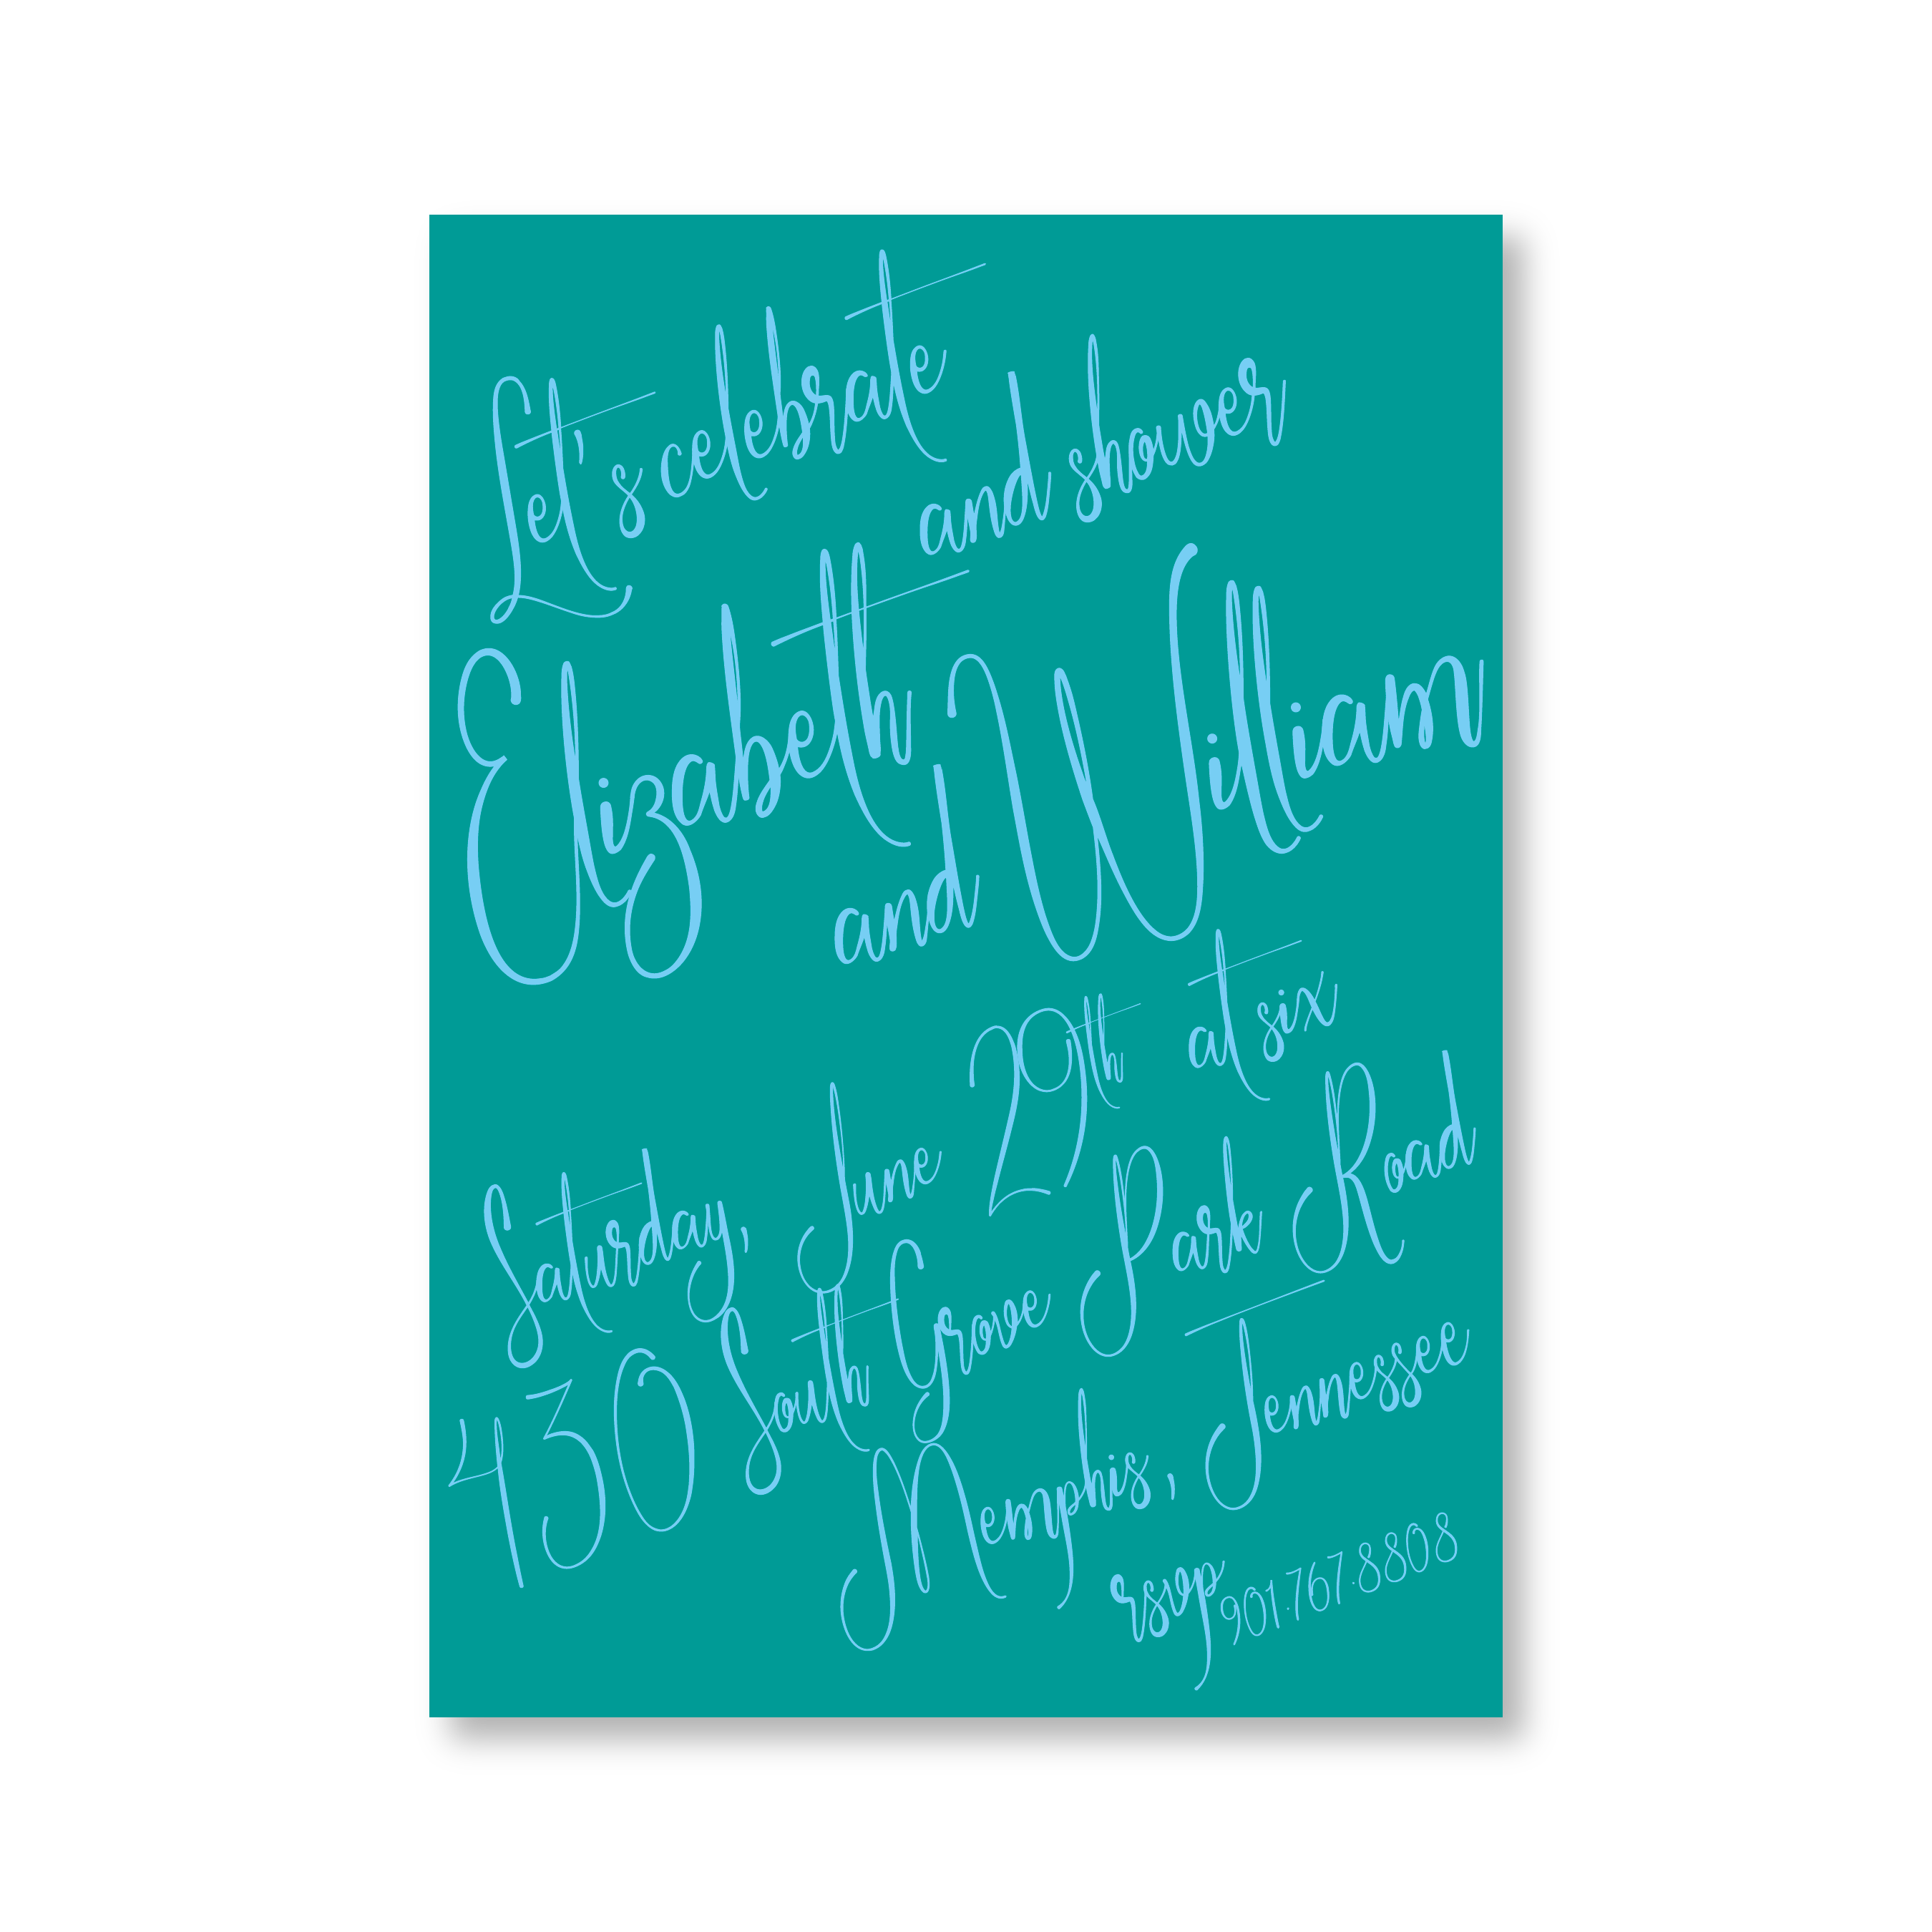 Let's celebrate
and shower
Elizabeth
and William
Saturday, June 29th at six
430 South Grove Park Road
Memphis, Tennessee
rsvp 901.767.8808